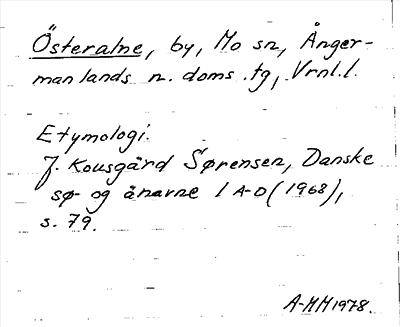 Österalne, by, Mo sn, Ånger-
manlands n. doms.tg, Vrnl.l.
Etymologi.
J. Kousgård Sørensen, Danske
sø- og ånavne I A-D (1968),
s. 79.
A-MM 1978.